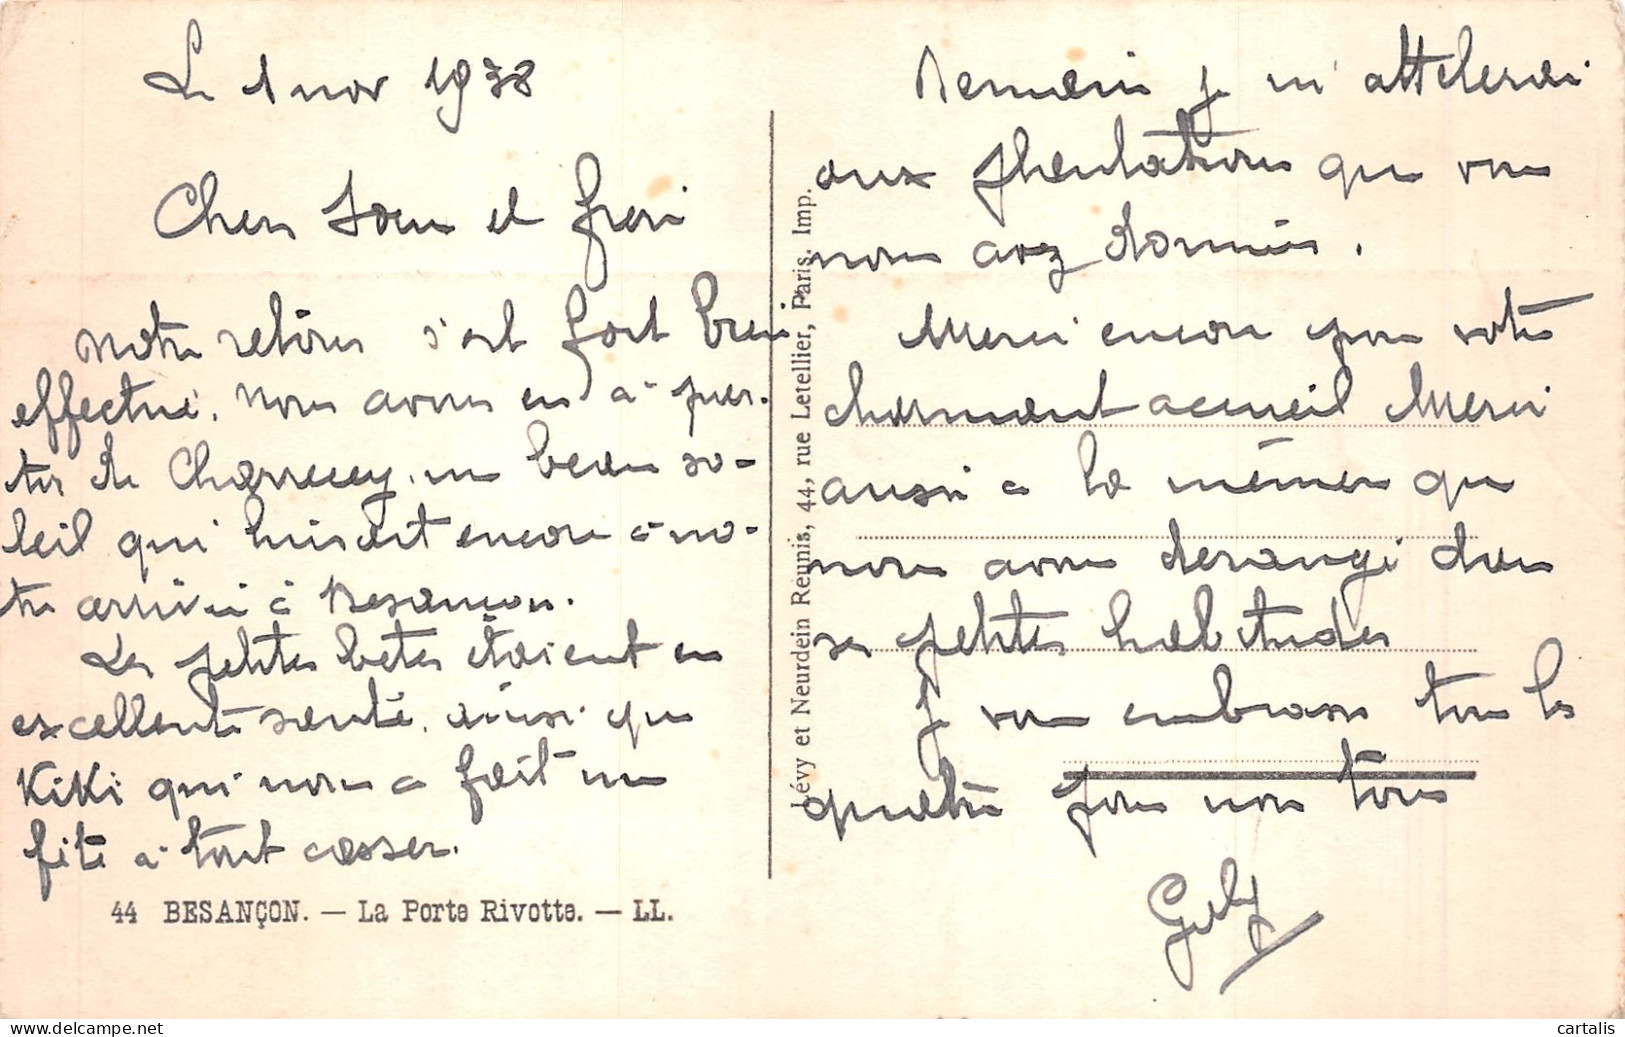 Le 1 nov 1938
Chers soeur et frère
Notre retour s'est fort bien
effectué. Nous avons eu à par-
tir de Charrecey un beau so-
leil qui luisait encore à no-
tre arrivée à Besançon.
Les petites bêtes étaient en
excellente santé. ainsi que
KiKi qui nous a fait une
fête à tout casser.
44 BESANÇON. — La Porte Rivotte. — LL.
Lévy et Neurdein Réunis, 44, rue Letellier, Paris. Imp.
Demain je m'attelerai
aux plantations que vous
nous avez données.
Merci encore pour votre
charmant accueil Merci
aussi à la mémère que
nous avons derangé dans
ses petites habitudes
Je vous embrasse tous les
quatre pour nous tous
cartalis